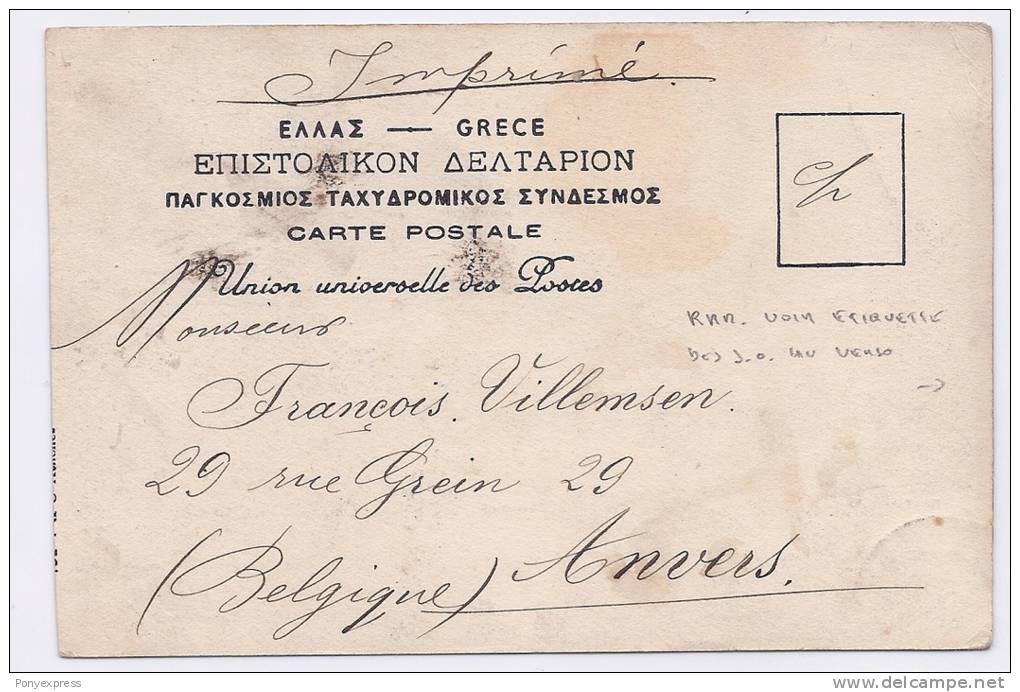 Imprimé.
ΕΛΛΑΣ — GRECE
ΕΠΙΣΤΟΛΙΚΟΝ ΔΕΛΤΑΡΙΟΝ
ΠΑΓΚΟΣΜΙΟΣ ΤΑΧΥΔΡΟΜΙΚΟΣ ΣΥΝΔΕΣΜΟΣ
CARTE POSTALE
Union universelle des Postes
Monsieur
RRR. VOIR ETIQUETTE
DES J.O. AU VERSO
→
François Villemsen.
29 rue Grein 29
Anvers.
(Belgique)
Ponyexpress
www.delcampe.net